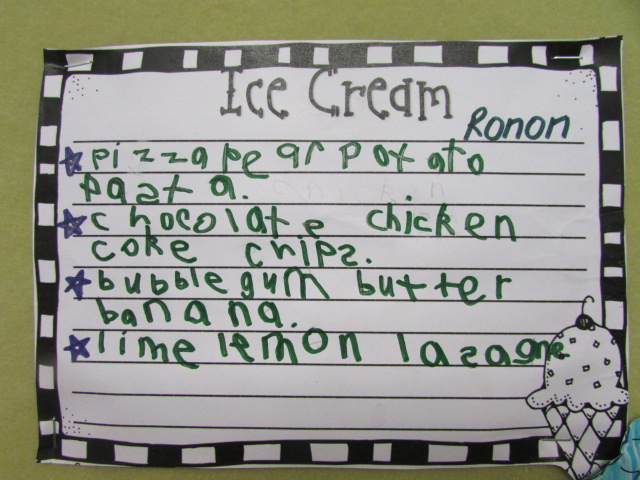 Ice Cream
Ronon
pizza pear potato
pasta.
chocolate chicken
coke chips.
bubblegum butter
banana.
lime lemon lasagne